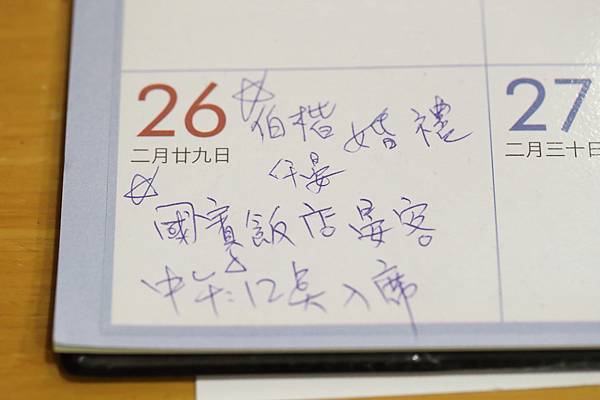 26
二月廿九日
☆伯楷 婚禮
午宴
☆
國賓飯店宴客
中午:12點入席
27
二月三十日